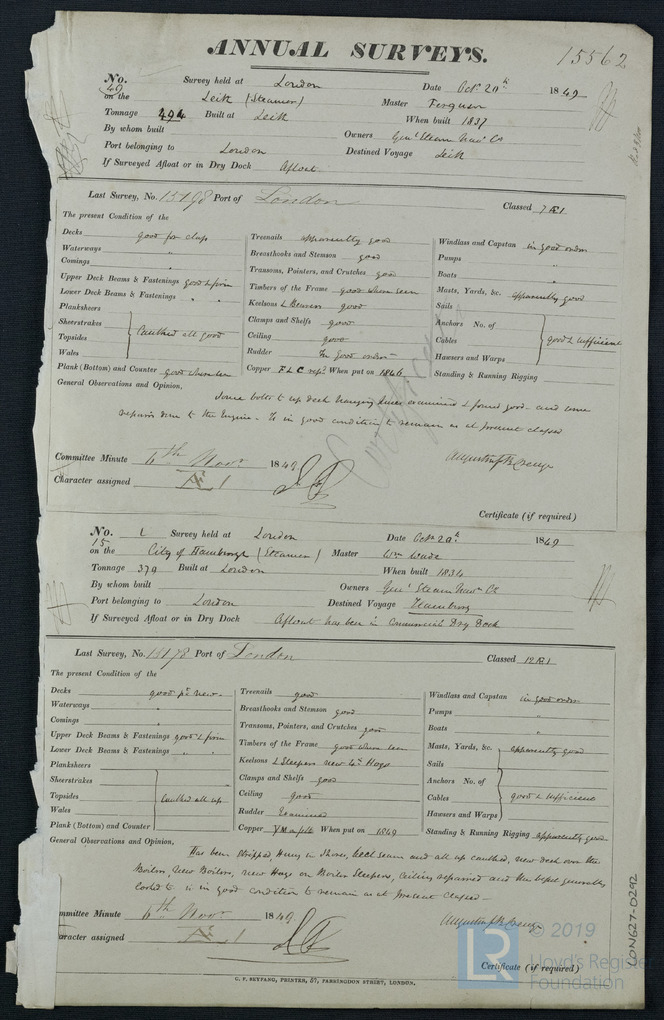 ANNUAL SURVEYS.
15562
No. 49 Survey held at London Date Octr. 20th 1849
on the Leith (Steamer) Master Ferguson
Tonnage 494 Built at Leith When built 1837
By whom built Owners Genl Steam Navn Co
Port belonging to London Destined Voyage Leith
If Surveyed Afloat or in Dry Dock Afloat
Last Survey, No. 15198 Port of London Classed 7 Æ1
The present Condition of the
Decks good
Waterways "
Comings "
Upper Deck Beams & Fastenings good & firm
Lower Deck Beams & Fastenings " "
Planksheers
Sheerstrakes
Topsides
Wales
Caulked all good
Plank (Bottom) and Counter good where seen
Treenails apparently good
Breasthooks and Stemson good
Transoms, Pointers, and Crutches good
Timbers of the Frame good where seen
Keelsons & Bearers good
Clamps and Shelfs good
Ceiling good
Rudder In good order
Copper F & C repd. When put on 1846
Windlass and Capstan in good order
Pumps "
Boats "
Masts, Yards, &c. apparently good
Sails
Anchors No. of
Cables
Hawsers and Warps
good & sufficient
Standing & Running Rigging
General Observations and Opinion,
Some bolts to up deck hanging knees examined & found good - and some
repairs done to the Engine - Is in good condition to remain as at present classed
Committee Minute 6th Novr. 1849
Character assigned Æ 1
Certificate (if required)
No. 15 Survey held at London Date Octr. 20th 1849
on the City of Hamburgh (Steamer) Master Wm Wade
Tonnage 379 Built at London When built 1834
By whom built Owners Genl Steam Navn Co
Port belonging to London Destined Voyage Hamburg
If Surveyed Afloat or in Dry Dock Afloat has been in Commercial Dry Dock
Last Survey, No. 15178 Port of London Classed 12 Æ1
The present Condition of the
Decks good pt. new
Waterways "
Comings "
Upper Deck Beams & Fastenings good & firm
Lower Deck Beams & Fastenings " "
Planksheers
Sheerstrakes
Topsides
Wales
Plank (Bottom) and Counter
Caulked all up
Treenails good
Breasthooks and Stemson good
Transoms, Pointers, and Crutches good
Timbers of the Frame good where seen
Keelsons & Sleepers new Hogs
Clamps and Shelfs good
Ceiling good
Rudder Examined
Copper Y M & felt When put on 1849
Windlass and Capstan in good order
Pumps "
Boats "
Masts, Yards, &c. apparently good
Sails
Anchors No. of
Cables
Hawsers and Warps
good & sufficient
Standing & Running Rigging apparently good
General Observations and Opinion,
Has been Stripped, Hung in Shores, each seam and all up caulked, new deck over the
Boilers, New Boilers, new Hogs on Boiler Sleepers, Ceiling repaired and the vessel generally
looked to is in good condition to remain as at present classed
mmittee Minute 6th Novr. 1849
aracter assigned Æ 1
Certificate (if required)
G. F. REYFANG, PRINTER, 57, FARRINGDON STREET, LONDON.
LON627-0292
LR
© 2019
Lloyd's Register
Foundation